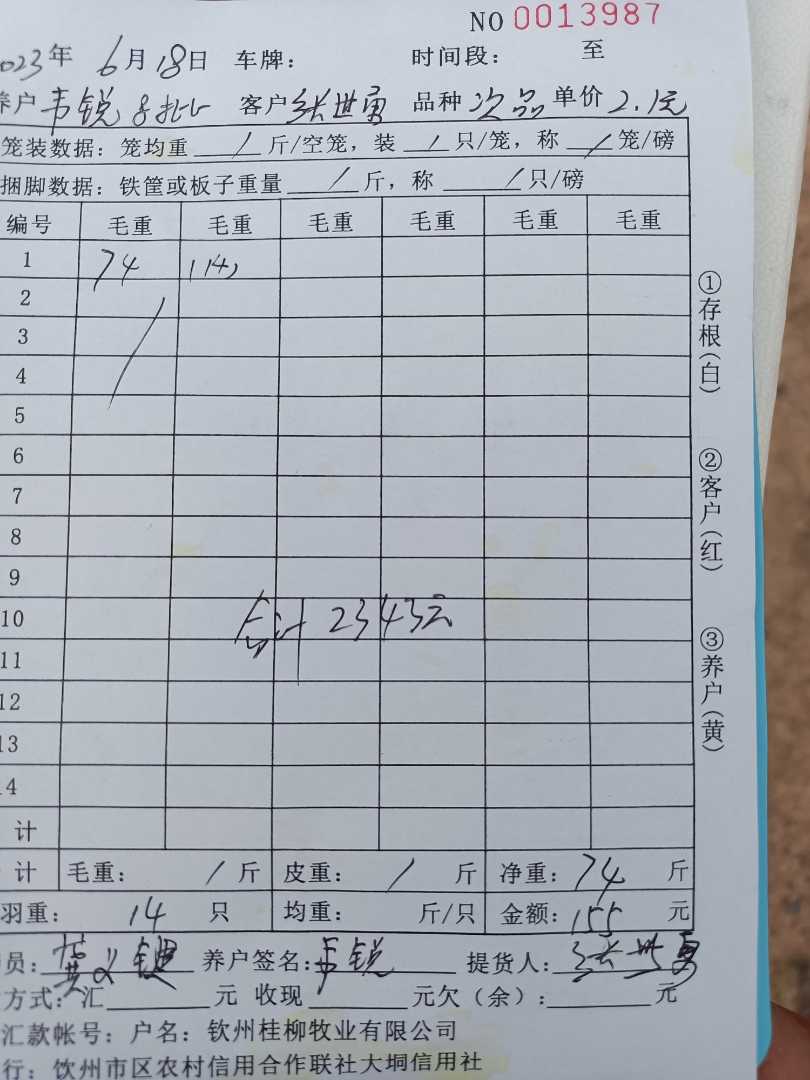 NO 0013987
2023年 6月18日 车牌： 时间段： 至
养户 韦锐 客户 张世勇 品种 次品 单价 2.1元
笼装数据：笼均重 / 斤/空笼，装 / 只/笼，称 / 笼/磅
捆脚数据：铁筐或板子重量 / 斤，称 / 只/磅
编号 毛重 毛重 毛重 毛重 毛重 毛重
1 74 (14)
2
3
4
5
6
7
8
9
10
11
12
13
14
计
合计 2343元
计 毛重： / 斤 皮重： / 斤 净重：74 斤
羽重： 14 只 均重： 斤/只 金额：155 元
员： 黄 养户签名：韦锐 提货人：张世勇
方式：汇 元 收现 元欠（余）： 元
汇款帐号：户名：钦州桂柳牧业有限公司
行：饮州市区农村信用合作联社大垌信用社
①存根（白）
②客户（红）
③养户（黄）